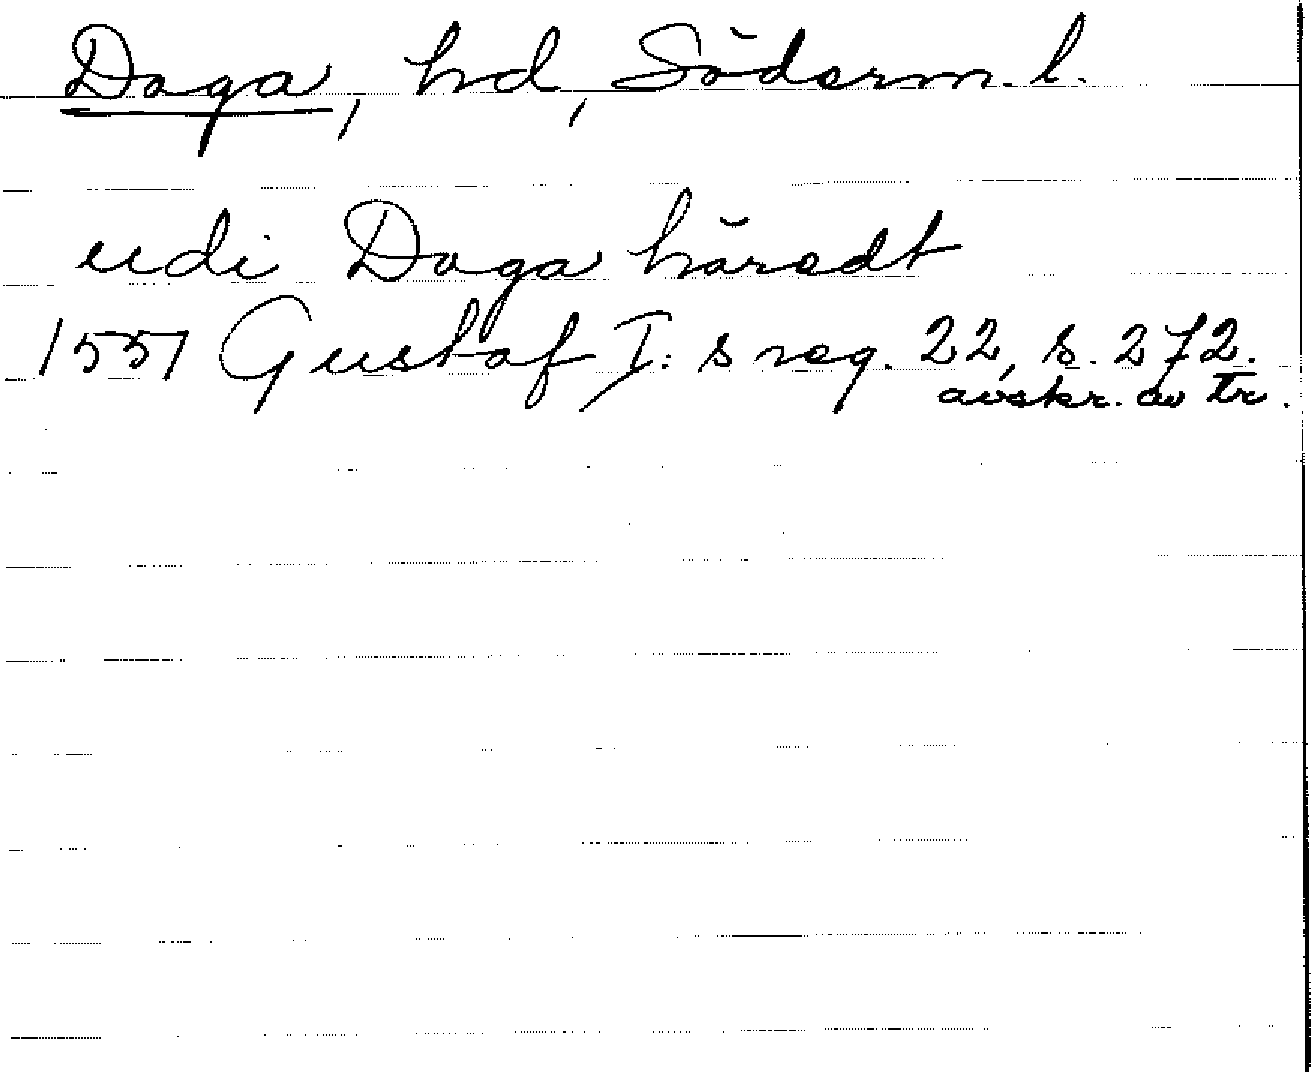 Daga, hd, Söderm. l.
udi Daga häredt
1551 Gustaf I:s reg. 22, s. 272.
avskr. av tr.